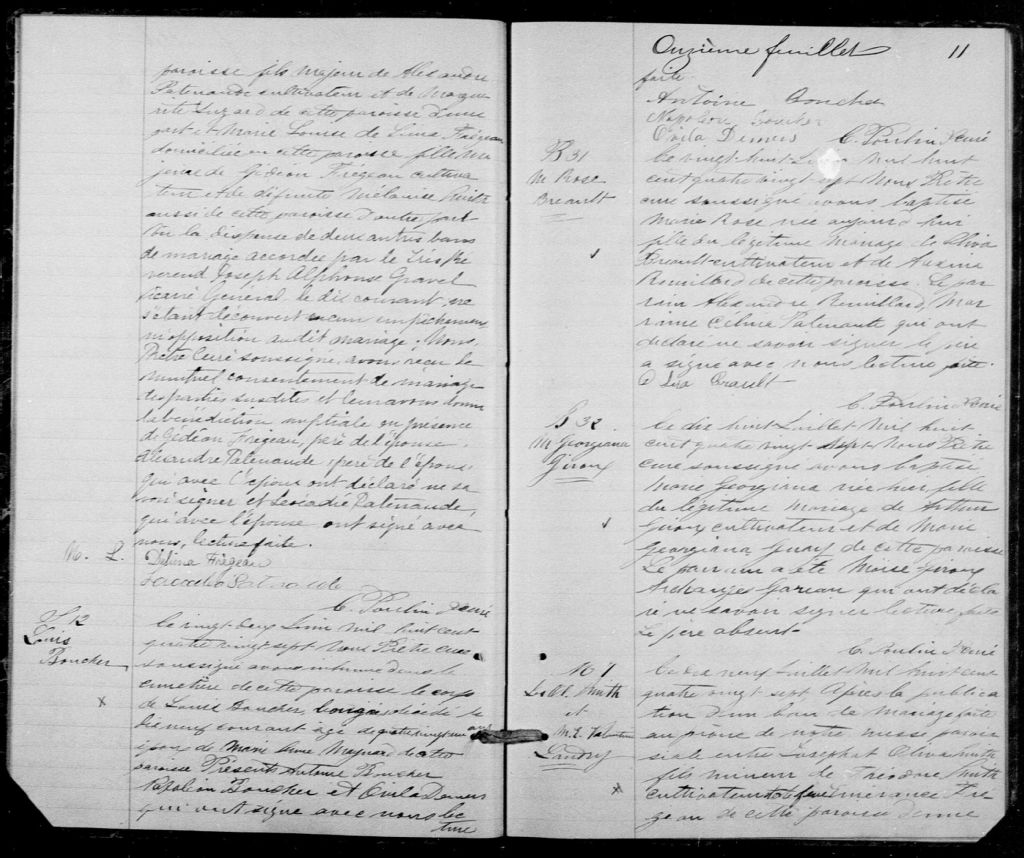 paroisse fils majeur de Alexandre
Patenaude cultivateur et de Margue
rite Suzard de cette paroisse d'une
part et Marie Louise de Lima Frégeau
domiciliée en cette paroisse, fille ma
jeure de Gédéon Frégeau cultiva
teur et de défunte Mélanie
aussi de cette paroisse d'autre part
Vu la dispense de deux autres bans
de mariage accordée par le Très Ré
verend Joseph Alphonse Gravel
Vicaire Général le dix courant, ne
s'étant découvert aucun empêchement
ni opposition au dit mariage. Nous,
Prêtre Curé soussigné, avons reçu le
mutuel consentement de mariage
des parties susdites et leur avons donné
la bénédiction nuptiale en présence
de Gédéon Frégeau, père de l'épouse,
Alexandre Patenaude, père de l'époux,
qui avec l'époux ont déclaré ne sa
voir signer et Léocadie Patenaude,
qui avec l'épouse ont signé avec
nous, lecture faite.
Delima Frégeau
C. Poulin Ptre curé
S 12
Louis
Boucher
le vingt deux Juin mil huit cent
quatre vingt sept Nous Prêtre curé
soussigné avons inhumé dans le
cimetière de cette paroisse le corps
de Louis Boucher, bourgeois, décédé le
dix neuf courant agé de quatre vingt un ans
époux de Marie Anne Maynard de cette
paroisse Présents Antoine Boucher
Napoléon Boucher et Ovila Demers
qui ont signé avec nous lec
ture
Onzième feuillet 11
faite.
Antoine Boucher
Napoléon Boucher
Ovila Demers
C. Poulin Ptre curé
B 31
M Rose
Breault
le vingt-huit mil huit
cent quatre vingt sept Nous Prêtre
curé soussigné avons baptisé
Marie Rose, née aujourd'hui
fille du légitime Mariage de Oliva
Breault cultivateur et de Auxina
Rouillard de cette paroisse. Le par
rain Alexandre Rouillard, Mar
raine Célina Patenaude qui ont
déclaré ne savoir signer le père
a signé avec nous lecture faite.
C. Poulin Ptre curé
B 32
M Georgiana
Giroux
le dix huit Juillet Mil huit
cent quatre vingt sept Nous Prêtre
curé soussigné avons baptisé
Marie Georgiana née hier fille
du légitime Mariage de Arthur
Giroux cultivateur et de Marie
Georgiana Guay de cette paroisse
Le parrain a été Moïse Giroux
Archanges Gareau qui ont décla
ré ne savoir signer lecture faite
Le père absent.
C. Poulin Ptre curé
M 7
Jos. Ol. Smith
et
M. E.
Landry
le dix neuf Juillet Mil huit cent
quatre vingt sept Après la publica
tion d'un ban de Mariage faite
au prône de notre messe parois
siale entre Josephat Oliva Smith
fils mineur de Théodore Smith
cultivateur et de feue Fre-
geau de cette paroisse d'une